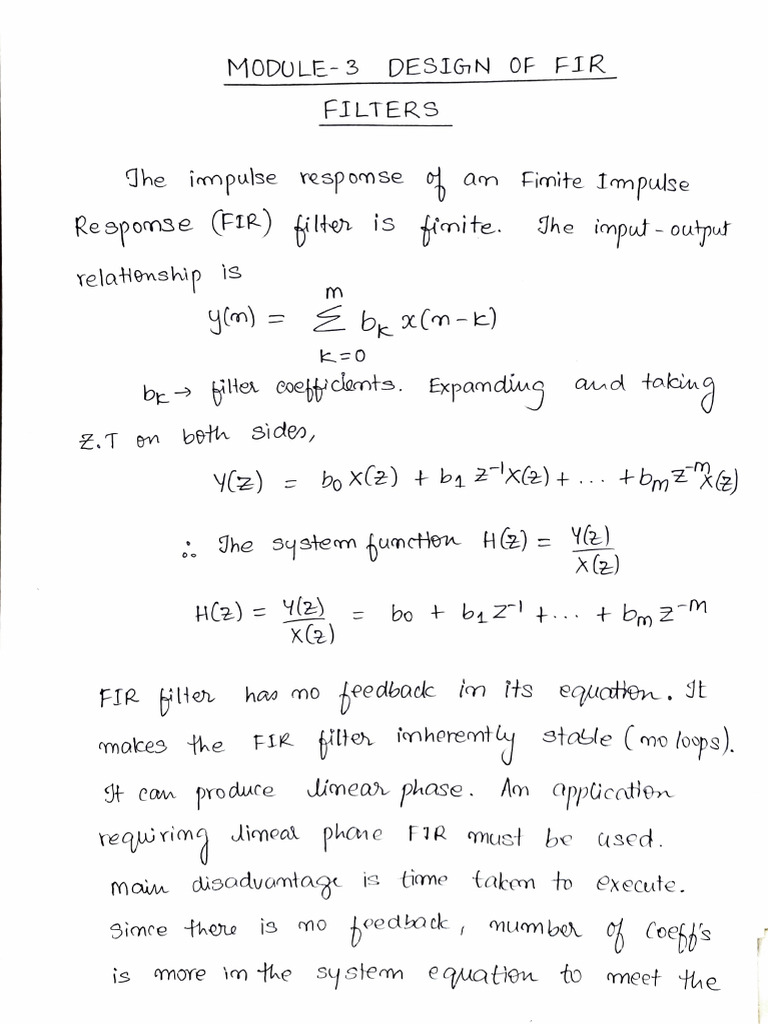 MODULE-3 DESIGN OF FIR
FILTERS
The impulse response of an Finite Impulse
Response (FIR) filter is finite. The input-output
relationship is
y(n) = Σ_{k=0}^{m} b_k x(n-k)
b_k → filter coefficients. Expanding and taking
Z.T on both sides,
Y(z) = b_0 X(z) + b_1 z^{-1} X(z) + ... + b_m z^{-m} X(z)
∴ The system function H(z) = Y(z)/X(z)
H(z) = Y(z)/X(z) = b_0 + b_1 z^{-1} + ... + b_m z^{-m}
FIR filter has no feedback in its equation. It
makes the FIR filter inherently stable (no loops).
It can produce linear phase. An application
requiring linear phase FIR must be used.
main disadvantage is time taken to execute.
Since there is no feedback, number of coeff's
is more in the system equation to meet the